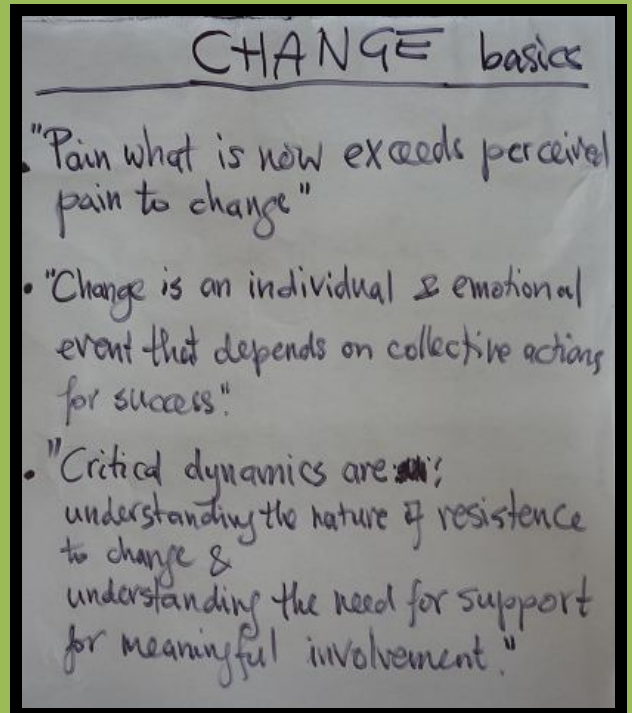 CHANGE basics
• "Pain what is now exceeds perceived
pain to change"
• "Change is an individual & emotional
event that depends on collective actions
for success".
• "Critical dynamics are:
understanding the nature of resistence
to change &
understanding the need for support
for meaningful involvement."